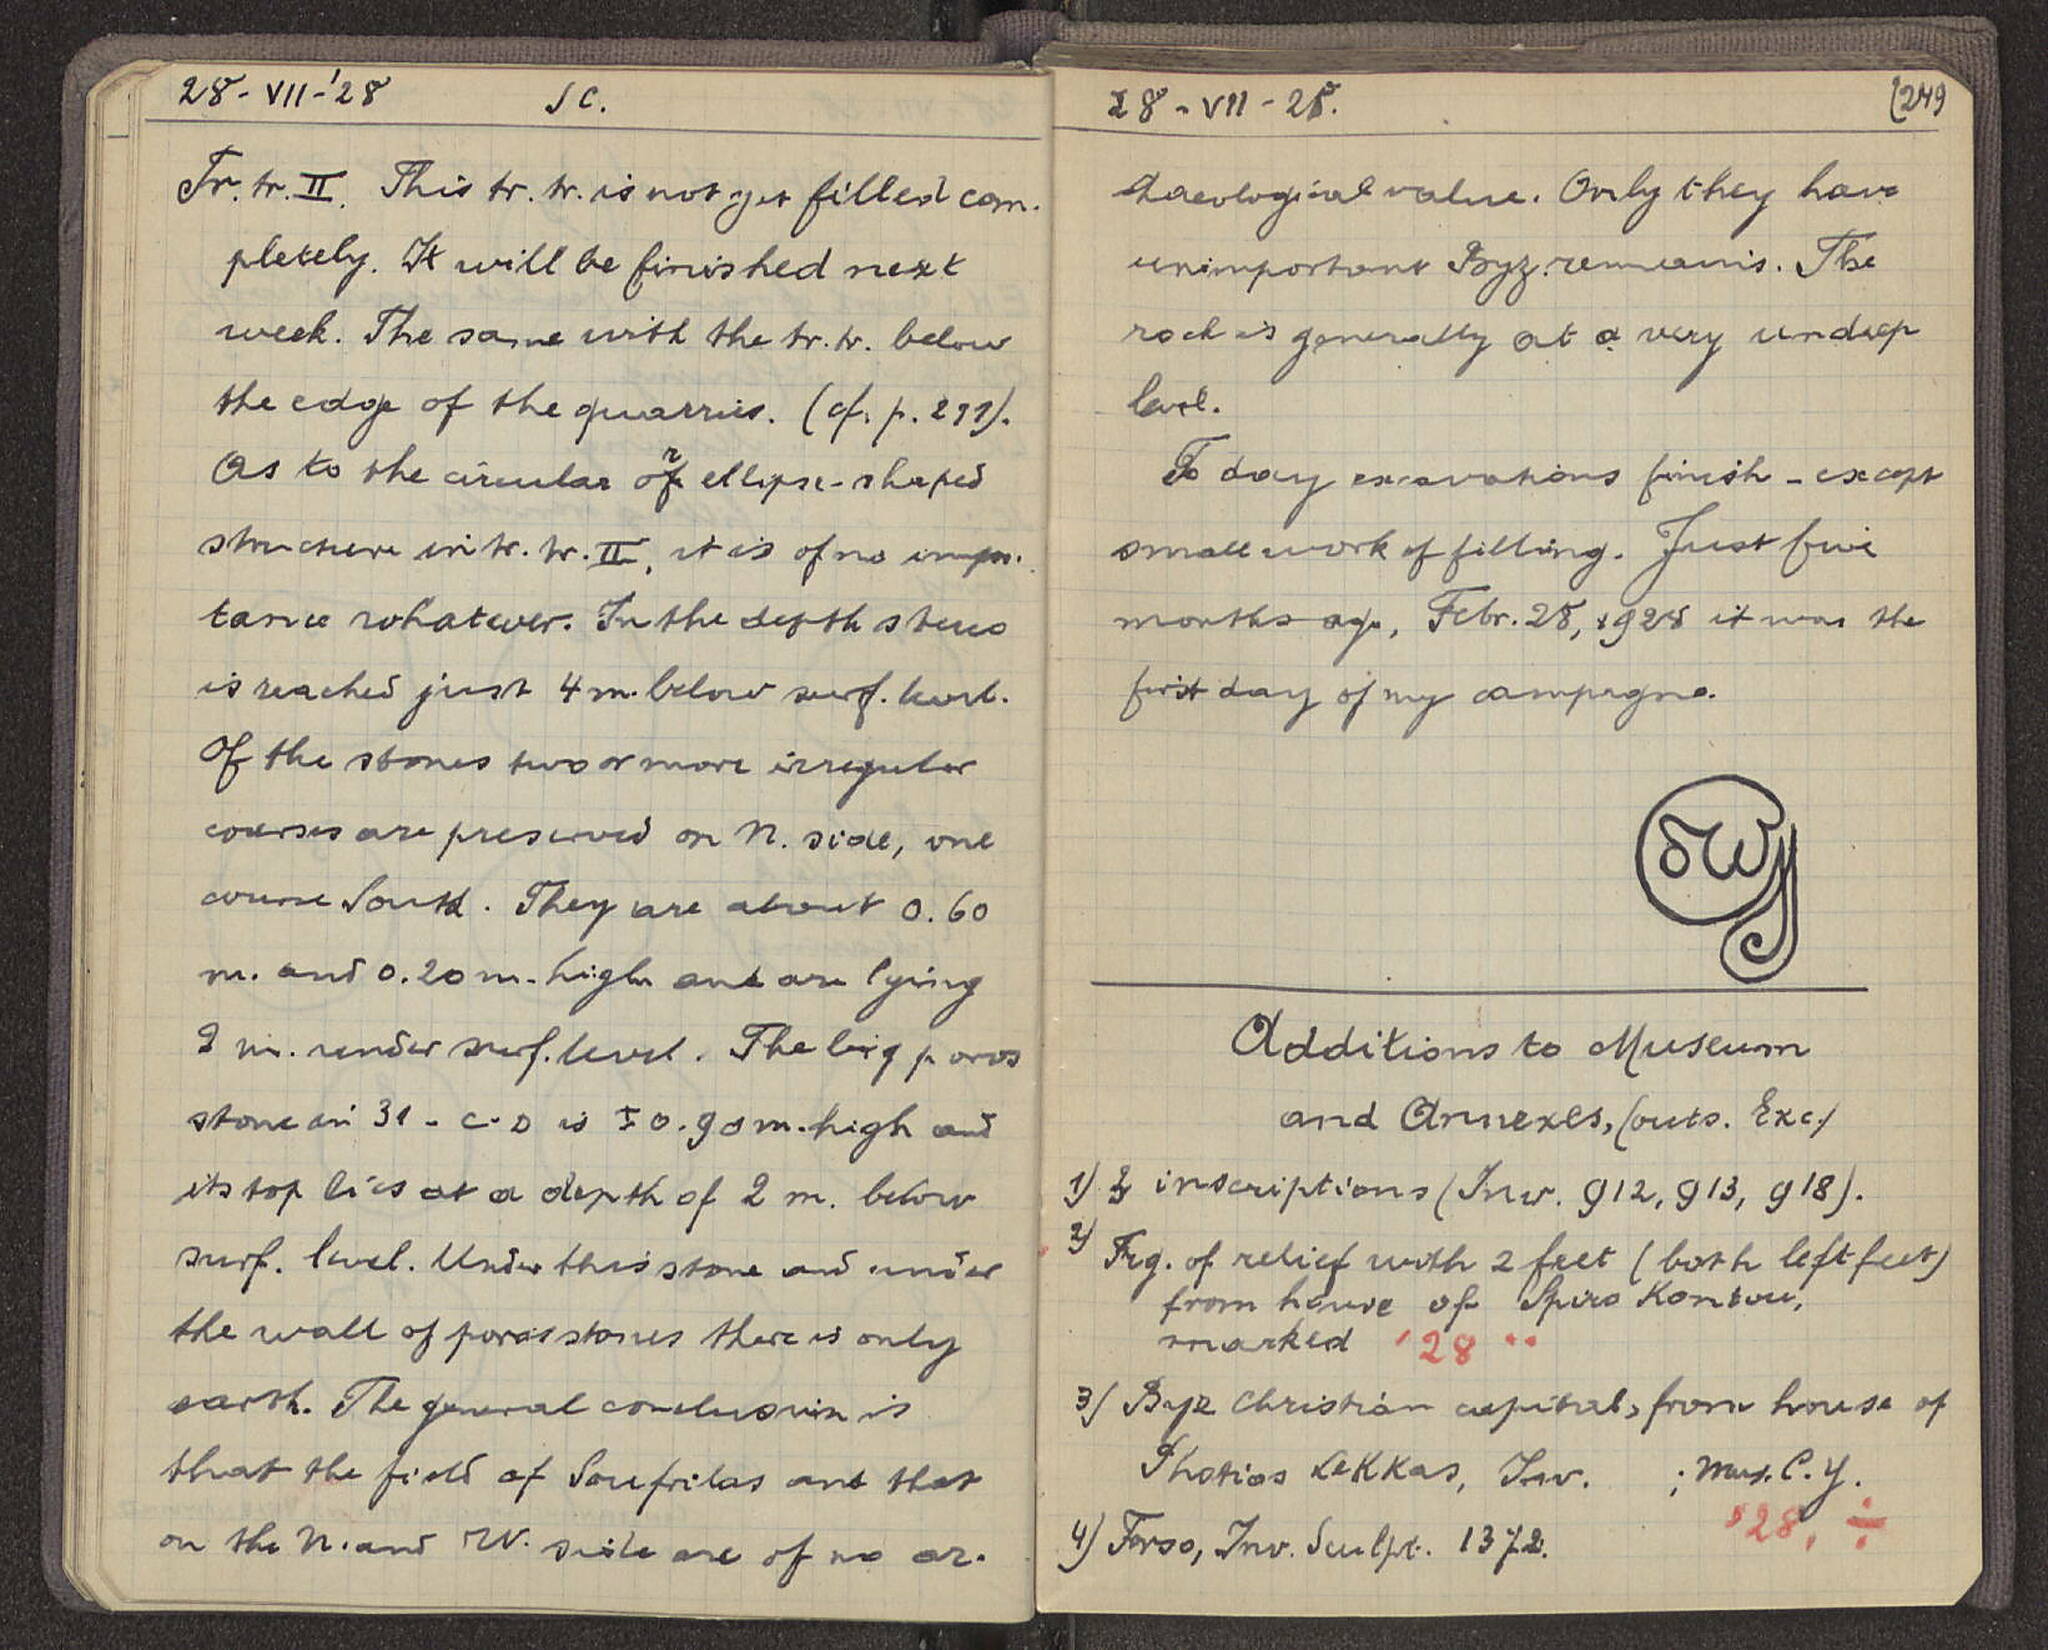 28-VII-'28 SC.
Tr. tr. II. This tr. tr. is not yet filled com-
pletely. It will be finished next
week. The same with the tr. tr. below
the edge of the quarries. (cf. p. 211).
As to the circular or ellipse-shaped
structure in tr. tr. II, it is of no impor-
tance whatever. In the depth stereo
is reached just 4 m. below surf. level.
Of the stones two or more irregular
courses are preserved on N. side, one
course South. They are about 0.60
m. and 0.20 m. high and are lying
2 m. under surf. level. The big poros
stone in 31 - C-D is ± 0.90 m. high and
its top lies at a depth of 2 m. below
surf. level. Under this stone and under
the wall of poros stones there is only
earth. The general conclusion is
that the field of Soufrilas and that
on the N. and W. side are of no ar-
28-VII-28. 249
chaeological value. Only they have
unimportant Byz. remains. The
rock is generally at a very undeep
level.
To day excavations finish - except
small work of filling. Just five
months ago, Febr. 28, 1928 it was the
first day of my campagne.
Additions to Museum
and Annexes, (outs. Exc.)
1) 3 inscriptions (Inv. 912, 913, 918).
2) Frg. of relief with 2 feet (both left feet)
from house of Spiro Kontou,
marked '28 ..
3) Byz Christian capital, from house of
Photios Lekkas, Inv. ; Mus. C.Y.
'28, ÷
4) Torso, Inv. Sculpt. 1372.